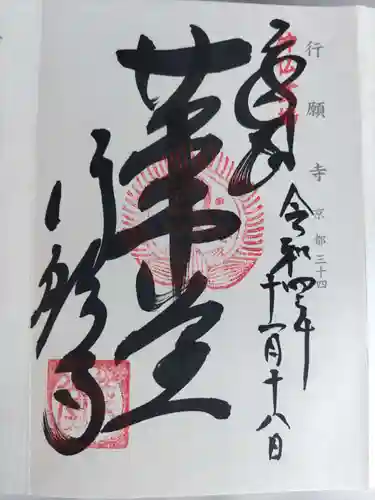 行願寺 京都三十四
奉拝
令和四年
十一月十八日
革堂
行願寺